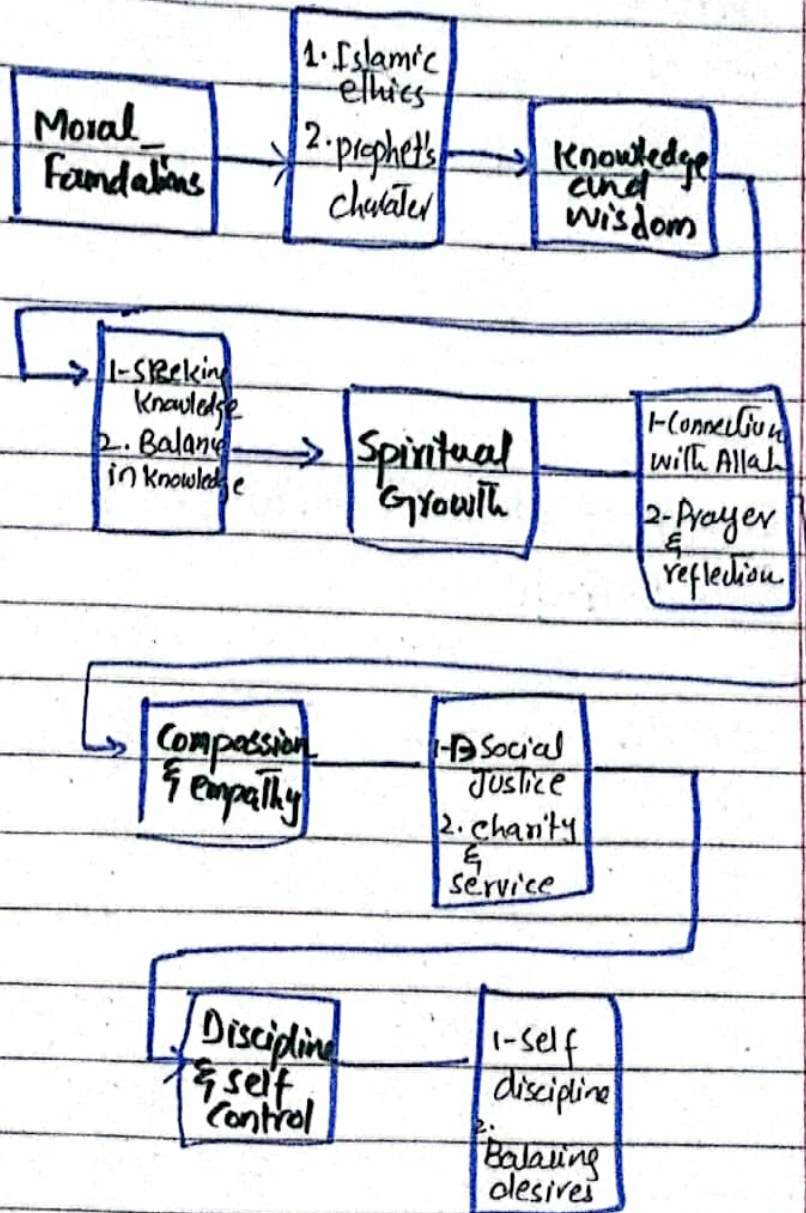 Moral
Foundations
1. Islamic
ethics
2. prophet's
charater
Knowledge
and
wisdom
1-Seeking
Knowledge
2. Balance
in knowledge
Spiritual
Growth
1-Connection
with Allah
2-Prayer
&
reflection
Compassion
& empathy
1- Social
Justice
2. charity
&
service
Discipline
& self
control
1-self
discipline
2.
Balancing
desires